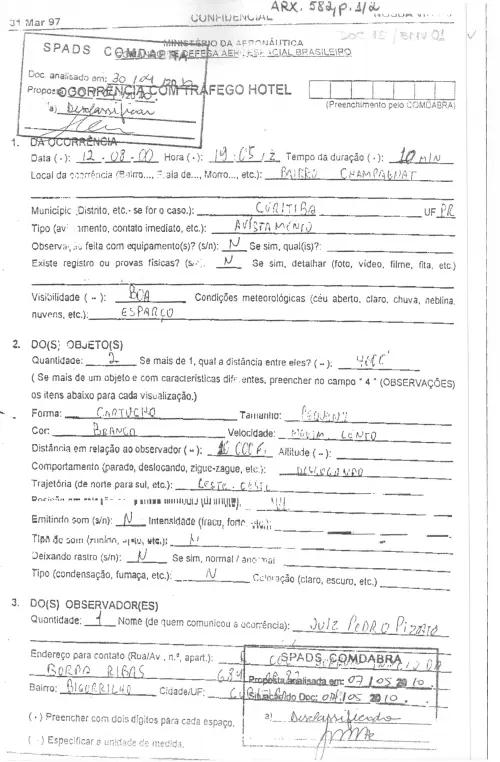 ARX. 582, p. 1/2
31 Mar 97
CONFIDENCIAL
DOC 15 / BMV 01
MINISTÉRIO DA AERONÁUTICA
SPADS COMDABRA
DEFESA AEROESPACIAL BRASILEIRO
Doc. analisado em: 30 / 04
OCORRÊNCIA COM TRÁFEGO HOTEL
a) Desclassificar
(Preenchimento pelo COMDABRA)
1. DA OCORRÊNCIA
Data ( - ): 12 - 08 - 00 Hora ( - ): 19:05 / Z Tempo da duração ( - ): 10 MIN
Local da ocorrência (Bairro..., Praia de..., Morro..., etc.): BAIRRO CHAMPAGNAT
Município (Distrito, etc.- se for o caso.): CURITIBA UF PR
Tipo (avistamento, contato imediato, etc.): AVISTAMENTO
Observação feita com equipamento(s)? (s/n): N Se sim, qual(is)?:
Existe registro ou provas físicas? (s/n): N Se sim, detalhar (foto, vídeo, filme, fita, etc.)
Visibilidade ( - ): BOA Condições meteorológicas (céu aberto, claro, chuva, neblina,
nuvens, etc.): ESPARÇO
2. DO(S) OBJETO(S)
Quantidade: 2 Se mais de 1, qual a distância entre eles? ( - ):
( Se mais de um objeto e com características diferentes, preencher no campo " 4 " (OBSERVAÇÕES)
os itens abaixo para cada visualização.)
Forma: CARTUCHO Tamanho:
Cor: BRANCO Velocidade: LENTO
Distância em relação ao observador ( - ): Altitude ( - ):
Comportamento (parado, deslocando, zigue-zague, etc.): DESLOCANDO
Trajetória (de norte para sul, etc.): LESTE - OESTE
Emitindo som (s/n): N Intensidade (fraco, forte, etc.):
Tipo de som (zunido, apito, etc.): N
Deixando rastro (s/n): N Se sim, normal / anormal
Tipo (condensação, fumaça, etc.): N Coloração (claro, escuro, etc.)
3. DO(S) OBSERVADOR(ES)
Quantidade: 1 Nome (de quem comunicou a ocorrência): JUIZ PEDRO
Endereço para contato (Rua/Av., n.º, apart.):
SPADS COMDABRA
RIBAS
Proposta analisada em: 07 / 05 20 10
Bairro: BIGORRILHO Cidade/UF:
Situação do Doc: 07 / 05 20 10
( - ) Preencher com dois dígitos para cada espaço.
a) Desclassificado
( - ) Especificar a unidade de medida.